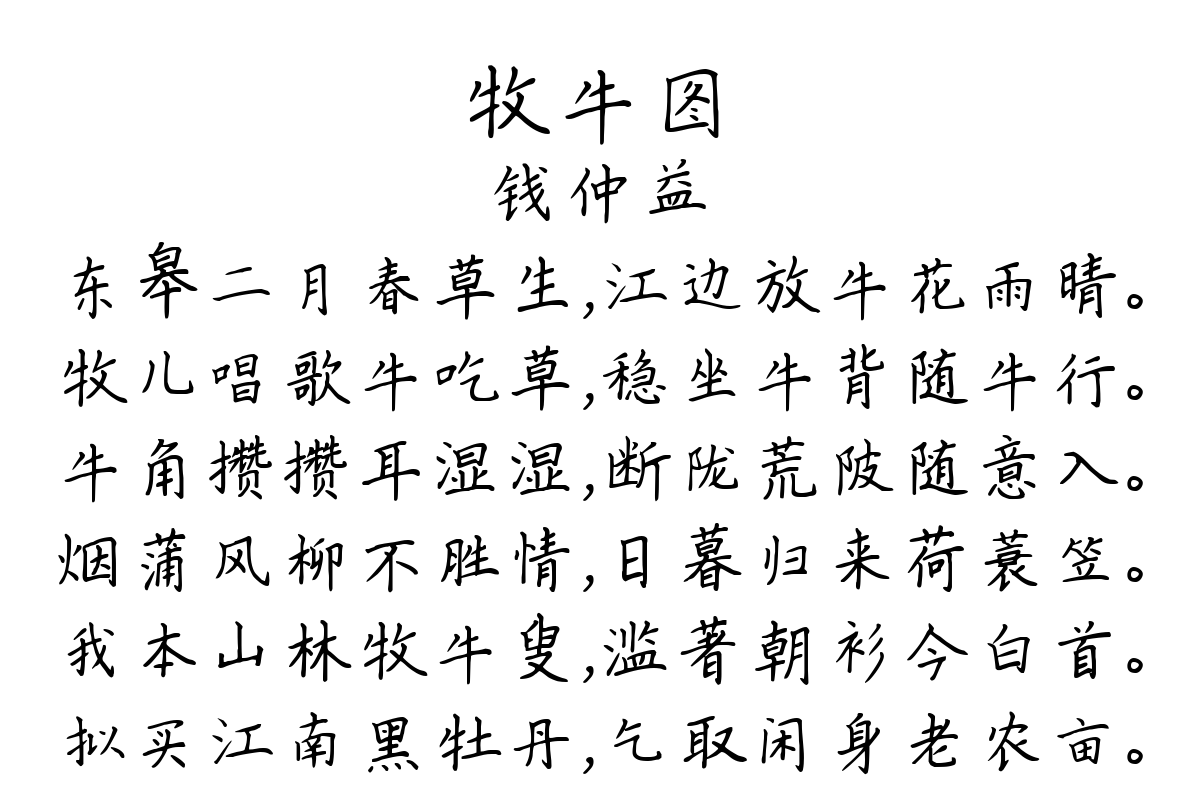 牧牛图
钱仲益
东皋二月春草生,江边放牛花雨晴。
牧儿唱歌牛吃草,稳坐牛背随牛行。
牛角攒攒耳湿湿,断陇荒陂随意入。
烟蒲风柳不胜情,日暮归来荷蓑笠。
我本山林牧牛叟,滥著朝衫今白首。
拟买江南黑牡丹,乞取闲身老农亩。